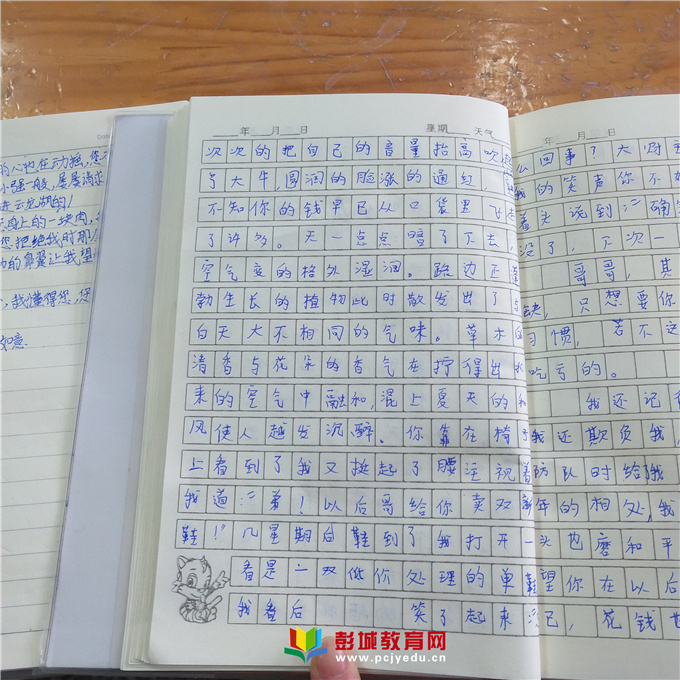 的心也在动摇,您
小强一般,屡屡请求
进云龙湖的!
身上的一块肉,
您拒绝我时那
的鼻翼让我望
我懂得您,您
如意.
年 月 日 星期 天气
次次的把自己的音量抬高吹
了大牛,圆润的脸涨的通红,
不知你的钱早已从口袋里飞
了许多。天一点点暗了下去,
空气变的格外湿润。路边正蓬
勃生长的植物此时散发出了与
白天大不相同的气味。草木的
清香与花朵的香气在拧得出水
来的空气中融和,混上夏天的和
风使人越发沉醉。你靠在椅子
上看到了我又挺起了腰注视着
我道:"弟!以后哥给你卖双新
鞋!"几星期后鞋到了我打开一
看是一双低价处理的单鞋
我看后 笑了起来
年 月 日
么回事?大
我的笑声你不
着头说到:"确
没了,下次一
哥哥,其
缺,只想要你
习惯,若不
吃亏的。
我还记
我还欺负我,
防队时给我
年的相处,我
头也磨和平
望你在以后
已,花钱
彭城教育网
www.pcjyedu.cn